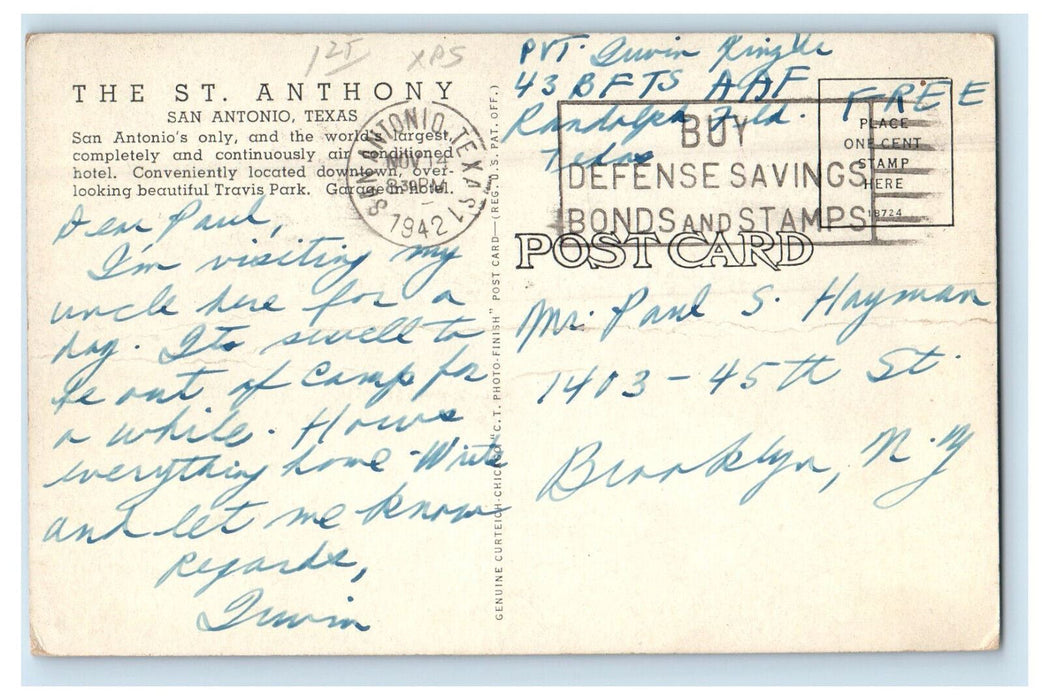 125 XPS
THE ST. ANTHONY
SAN ANTONIO, TEXAS
San Antonio's only, and the world's largest,
completely and continuously air conditioned
hotel. Conveniently located downtown, over-
looking beautiful Travis Park. Garage in hotel.
SAN ANTONIO, TEXAS 1
NOV 14
830 PM
1942
BUY
DEFENSE SAVINGS
BONDS AND STAMPS
PLACE
ONE CENT
STAMP
HERE
18724
PVT. Irwin
43 BFTS AAF FREE
Randolph Field.
Texas
POST CARD
Dear Paul,
I'm visiting my
uncle here for a
day. Its swell to
be out of camp for
a while. Hows
everything home - Write
and let me know
Regards,
Irwin
GENUINE CURTEICH-CHICAGO "C.T. PHOTO-FINISH" POST CARD—(REG. U.S. PAT. OFF.)
Mr. Paul S. Hayman
1403 - 45th St.
Brooklyn, N.Y